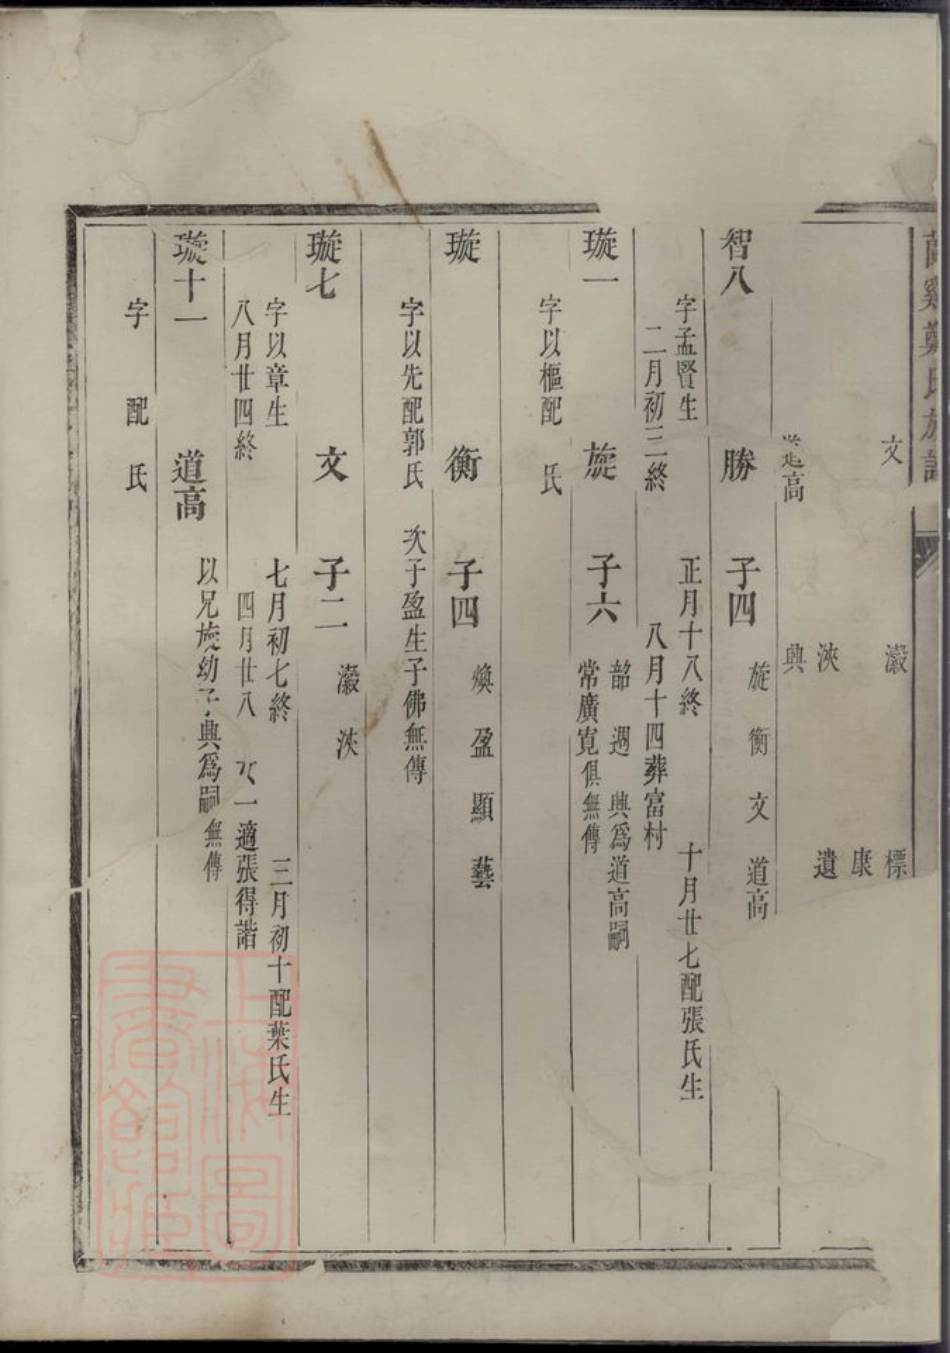 鄭氏族譜
文 瀔 標
康
浹 遺
道高 興
智八 勝 子四 旋 衡 文 道高
字孟賢生 正月十八終 十月廿七配張氏生
二月初三終 八月十四葬富村
璇一 旋 子六 韶 遇 興爲道高嗣
常廣寬俱無傳
字以樞配 氏
璇 衡 子四 煥 盈 顯 藝
字以先配郭氏 次子盈生子佛無傳
璇七 文 子二 瀔 浹
字以章生 七月初七終 三月初十配葉氏生
八月廿四終 四月廿八 女一適張得諧
璇十一 道高 以兄旋幼子興爲嗣無傳
字 配 氏
上海圖書館藏